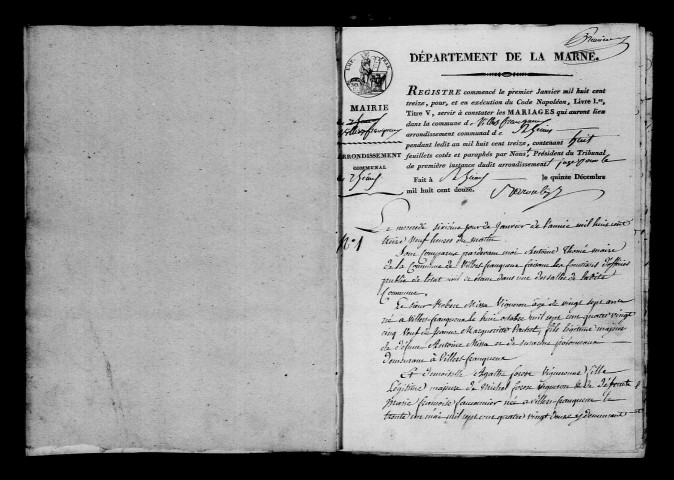 DÉPARTEMENT DE LA MARNE.
MAIRIE
Villers franqueux
ARRONDISSEMENT
COMMUNAL
de Rheims
REGISTRE commencé le premier Janvier mil huit cent
treize, pour, et en exécution du Code Napoléon, Livre I.er,
Titre V, servir à constater les MARIAGES qui auront lieu
dans la commune de Villers franqueux
arrondissement communal de Rheims
pendant ledit an mil huit cent treize, contenant huit
feuillets cotés et paraphés par Nous, Président du Tribunal
de première instance dudit arrondissement
Fait à Rheims le quinze Décembre
mil huit cent douze.
N.o 1
Le mercredi sixième jour de janvier de l'année mil huit cent
treize neuf heures du matin
Sont comparus pardevant moi Antoine Thomé maire
de la Commune de Villers franqueux faisant les fonctions d'officier
public de l'état civil et étant dans une des salles de ladite
Commune
Le sieur Robert Missa Vigneron âgé de vingt sept ans
né à Villers franqueux le huit octobre mil sept cent quatre vingt
cinq veuf de Jeanne Margueritte fils légitime majeur
de défunt Antoine Missa et de Susanne
demeurant à Villers franqueux
Et demoiselle Agathe forest Vigneronne fille
légitime majeure de Michel forest Vigneron et de défunte
Marie françoise née à Villers franqueux le
trente un mai mil sept cent quatre vingt douze y demeurant